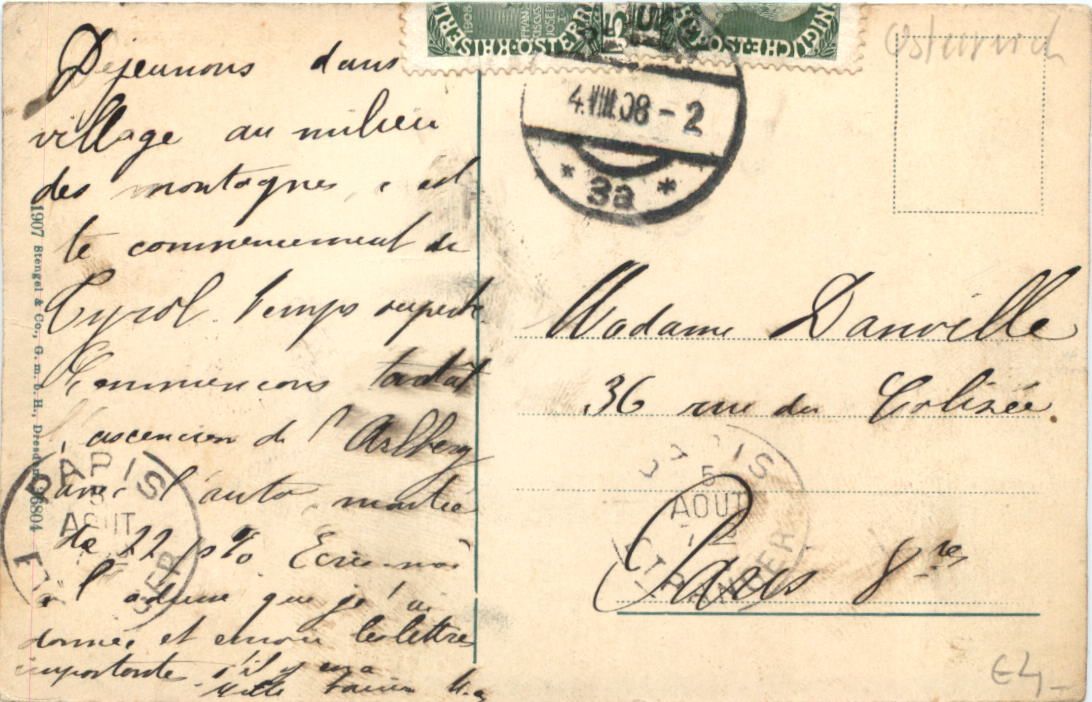 Déjeunons dans
village au milieu
des montagnes, c'est
le commencement du
Tyrol. Temps superbe
Commençons tantôt
l'ascencion de l'Arlberg
avec l'auto, montée
de 22 p% Ecrivez moi
à l'adresse que je t'ai
donnée et envoie les lettres
importantes s'il y en a
Mille
1907 Stengel & Co., G. m. b. H., Dresden
6804
KAISERL KÖ OSTERR
1908
FRANZ JOSEPH I
5
4.VIII.08-2
* 3a *
Osterreich
Madame Danville
36 rue du Colisée
Paris 8re
PARIS
5
AOUT
ETRANGER
PARIS
AOUT
E4-